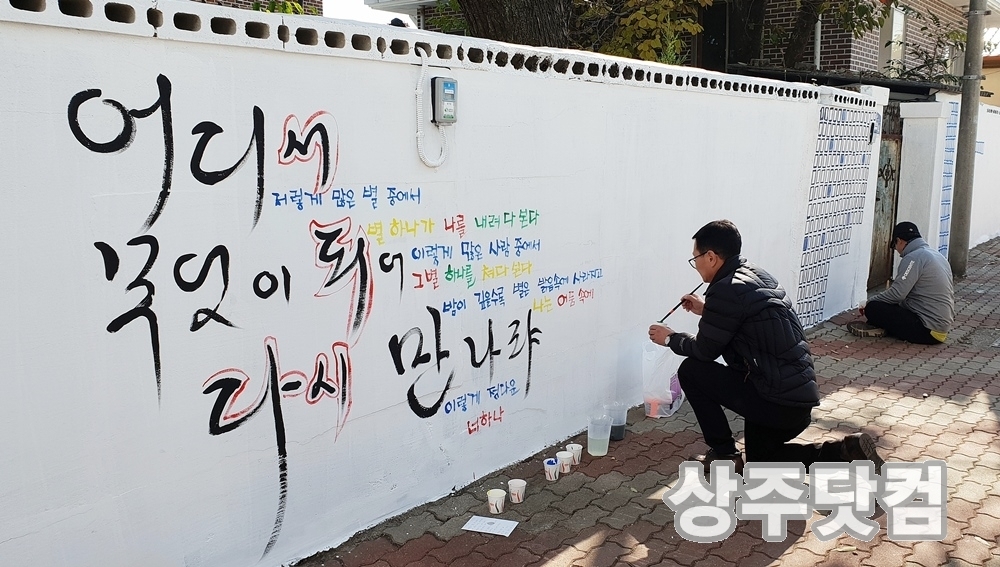 어디서
무엇이 되어
다시 만나랴
저렇게 많은 별 중에서
별 하나가 나를 내려다 본다
이렇게 많은 사람 중에서
그별 하나를 쳐다 본다
밤이 깊을수록 별은 밝음속에 사라지고
나는 어둠 속에
이렇게 정다운
너하나
상주닷컴